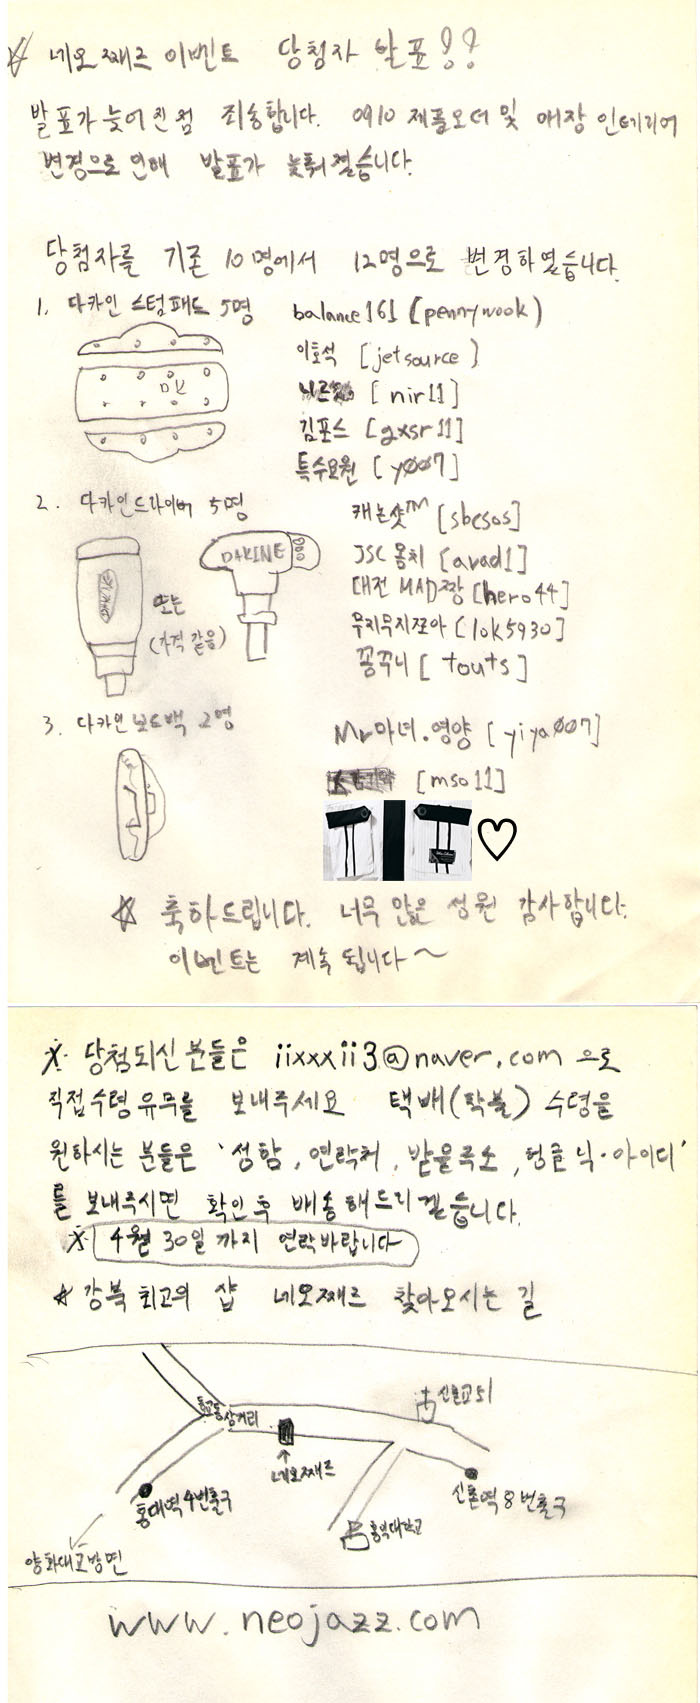 ☆ 네오째즈 이벤트 당첨자 발표!!
발표가 늦어진점 죄송합니다. 0910 제품오더 및 매장 인테리어
변경으로 인해 발표가 늦춰졌습니다.
당첨자를 기존 10명에서 12명으로 변경하였습니다.
1. 다카인 스텀패드 5명
balance161 [pennywook)
이호석 [jetsource)
DK
니르 [nir11]
김포스 [gxsr11]
특수요원 [y007]
2. 다카인드라이버 5명
캐논샷™ [sbesos]
DAKINE
JSC 뭉치 [avad1]
또는
대전 MAD짱 [hero44]
(가격 같음)
무지무지조아 [lok5930]
꽁꾸니 [touts]
3. 다카인 보드백 2명
Mr마녀.영양 [yiya007]
[mso11]
☆ 축하드립니다. 너무 많은 성원 감사합니다.
이벤트는 계속 됩니다~
※ 당첨되신 분들은 iixxxii3@naver.com 으로
직접수령 유무를 보내주세요 택배(착불) 수령을
원하시는 분들은 '성함, 연락처, 받을주소, 헝글닉·아이디'
를 보내주시면 확인후 배송해드리겠습니다.
※ 4월 30일 까지 연락바랍니다
☆ 강북 최고의 샵 네오째즈 찾아오시는 길
동교동 삼거리
네오째즈
홍대역 4번출구
신촌역 8번출구
양화대교방면
www.neojazz.com